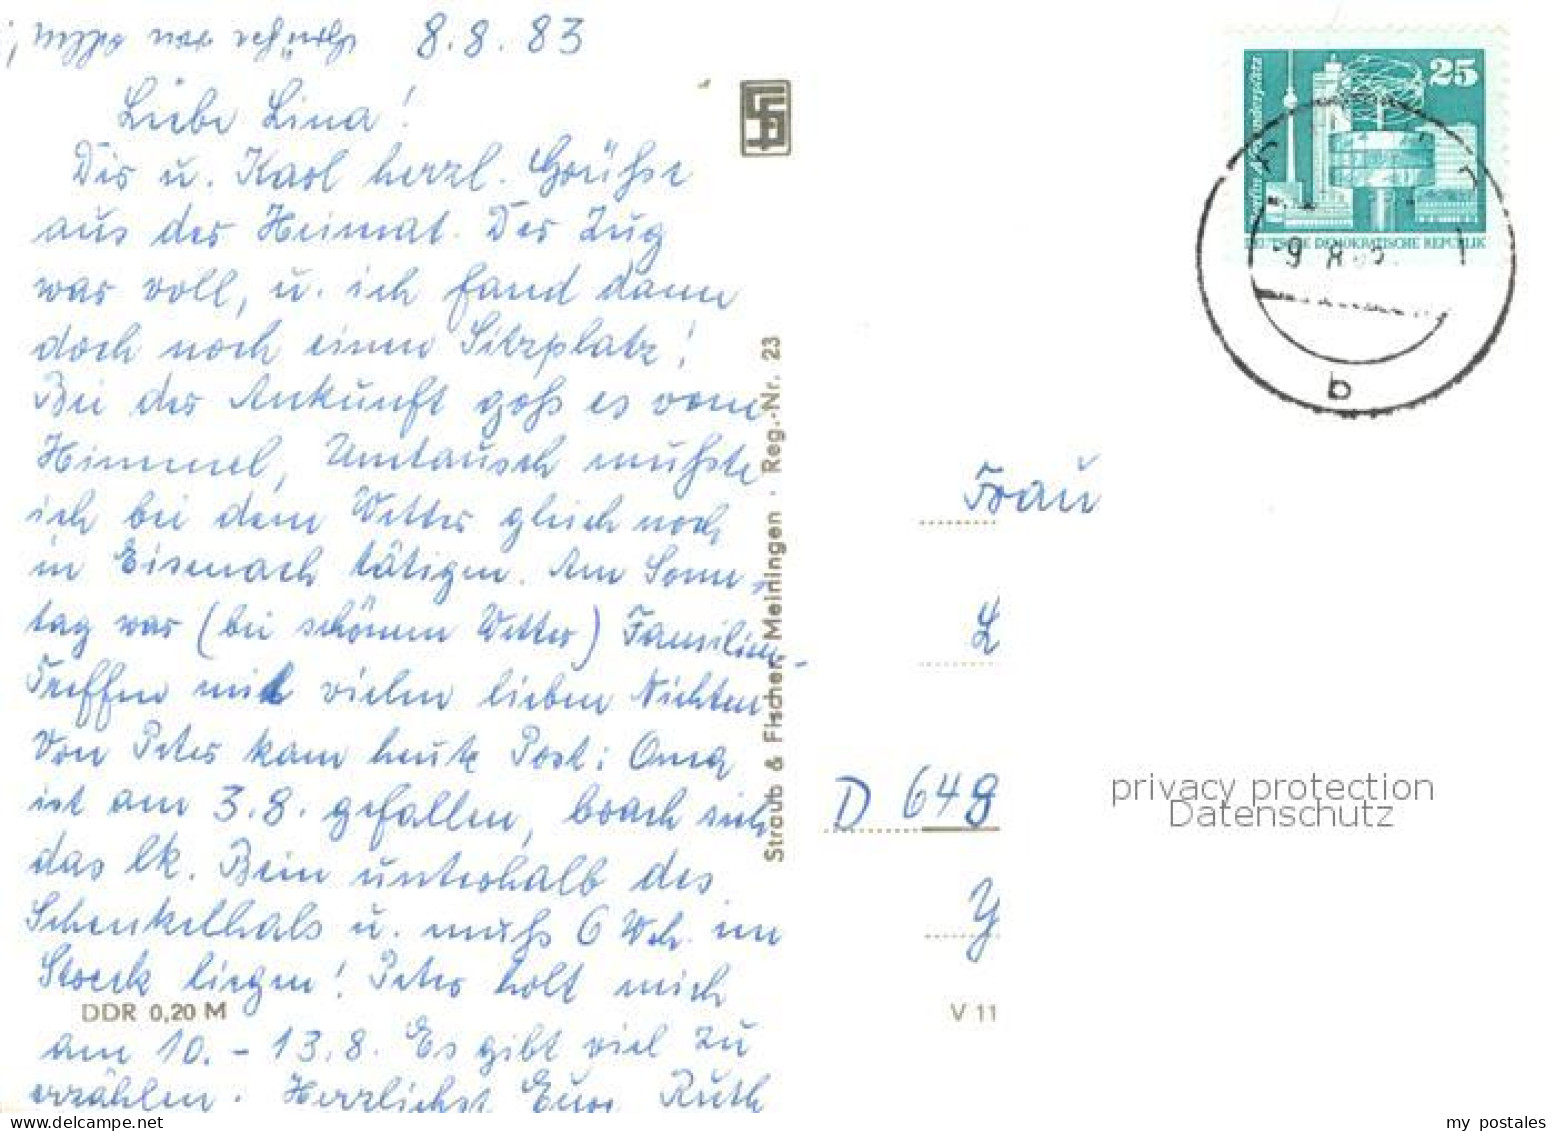 8.8.83
Liebe Lina!
Dir u. Karl herzl. Grüße
aus der Heimat. Der Zug
war voll, u. ich fand dann
doch noch einen Sitzplatz!
Bei der Ankunft goß es vom
Himmel, Umtausch mußte
ich bei dem Wetter gleich noch
in Eisenach tätigen. Am Sonn-
tag war (bei schönem Wetter) Familien-
Treffen mit vielen lieben Nichten
Von Peter kam heute Post: Oma
ist am 3.8. gefallen, brach sich
das lk. Bein unterhalb des
Schenkelhals u. muß 6 Wch. im
Streck liegen! Peter holt mich
am 10. - 13.8. Es gibt viel zu
erzählen. Herzlichst Eure Ruth
DDR 0,20 M
Straub & Fischer, Meiningen · Reg.-Nr. 23
V 11
25
DEUTSCHE DEMOKRATISCHE REPUBLIK
b
Frau
L
D 649
Y
privacy protection
Datenschutz
my postales